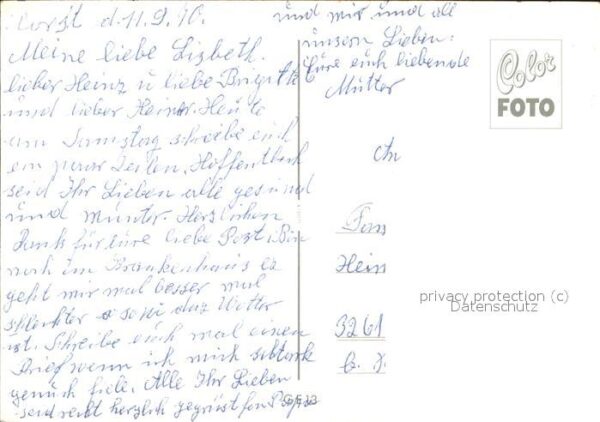 Horst d. 11.9.70.
Meine liebe Lisbeth.
lieber Heinz u liebe Brigitte
und lieber Heiner. Heute
am Samstag schreibe euch
ein paar Zeilen, Hoffentlich
seid Ihr Lieben alle gesund
und munter. Herzlichen
Dank für eure liebe Post. Bin
noch im Krankenhaus es
geht mir mal besser mal
schlechter so wi daz Wetter
ist. Schreibe euch mal einen
Brief wenn ich mich
genüch fiele. Alle Ihr Lieben
seid recht herzlich gegrüst fon
und mir und all
unsern Lieben:
Eure euch liebende
Mutter
Color
FOTO
An
Fam
Hein
3261
privacy protection (c)
Datenschutz